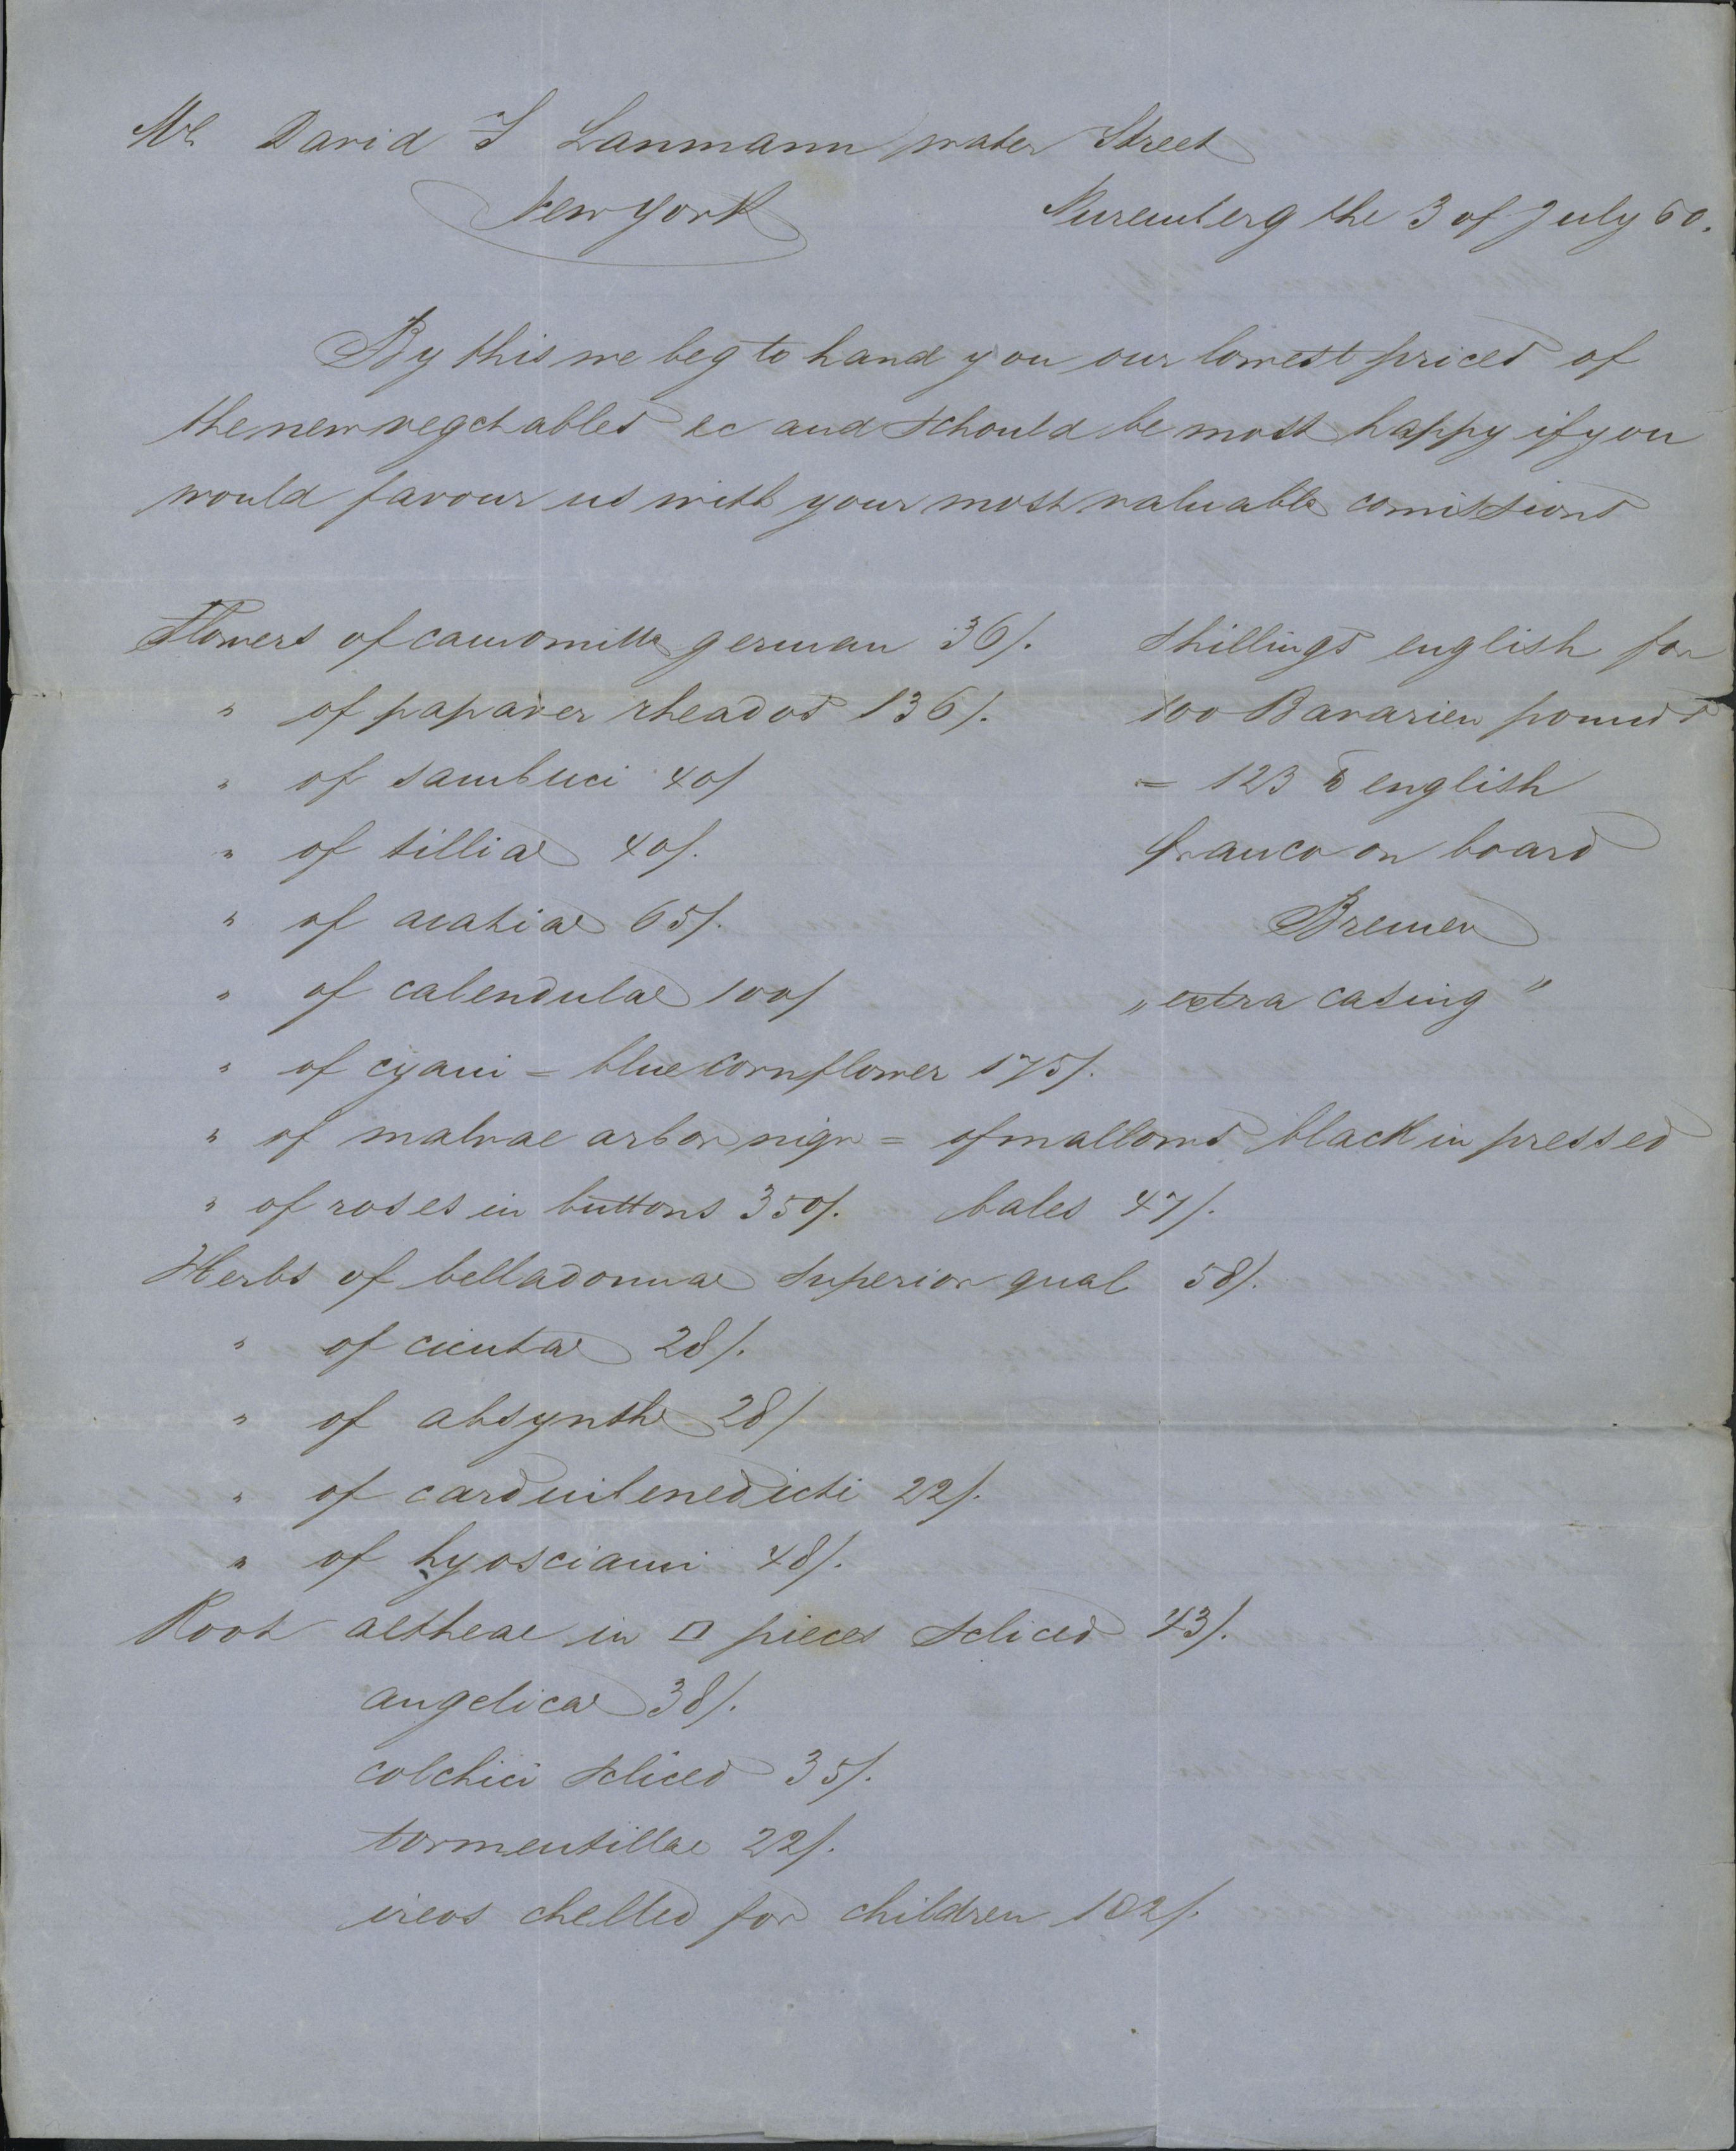 Mr David T Lanmann water Street
New York
Nuremberg the 3 of July 60.
By this we beg to hand you our lowest prices of
the new vegetables ec and schould be most happy if you
would favour us with your most valuable comissions
Flowers of camomille german 36/. Shillings english for
" of papaver rheados 136/. 100 Bavarien pounds
" of sambuci 40/ = 123 ℔ english
" of tilliae 40/. franco on board
" of acatiae 65/. Bremen
" of calendulae 100/ „extra casing"
" of cyani = blue cornflower 175/.
" of malvae arbor nigr = of mallows black in pressed
" of roses in buttons 350/. bales 47/.
Herbs of belladonnae superior qual 58/.
" of cicutae 28/.
" of absynthe 28/
" of cardui benedicti 22/.
" of hyosciami 48/.
Root altheae in □ pieces scliced 43/.
angelicae 38/.
colchici scliced 35/.
tormentillae 22/.
ireos chelled for children 102/.